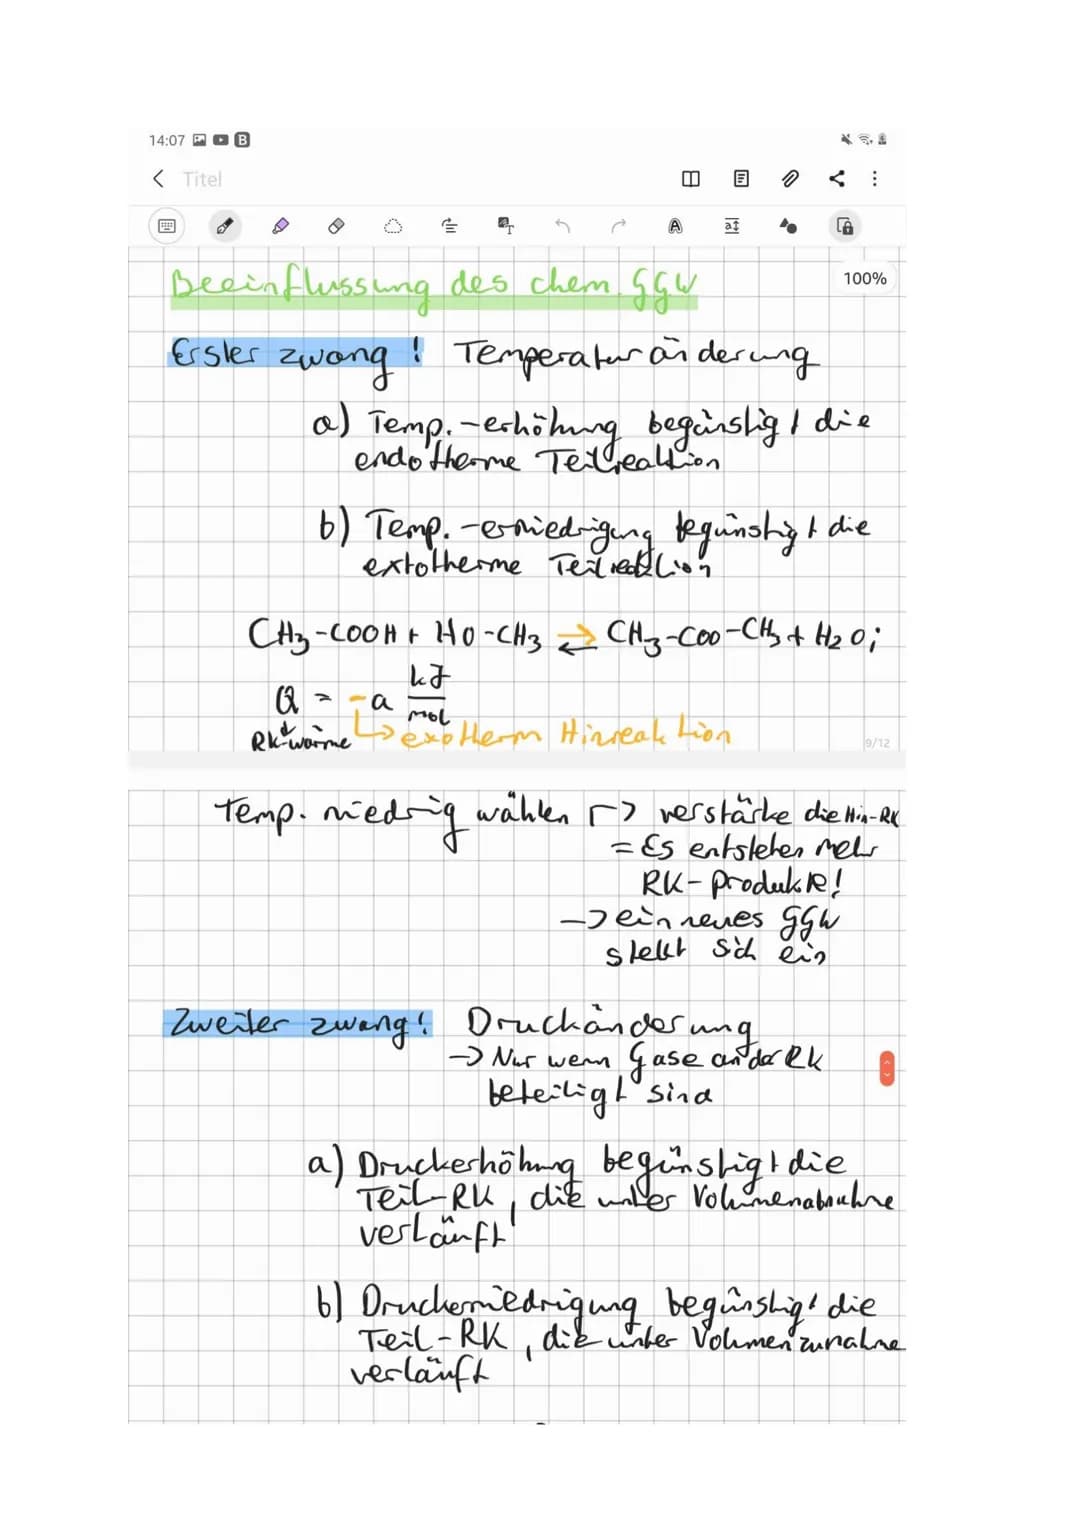 14:07
Titel
100%
Beeinflussung des chem. GGW
Erster zwang! Temperaturänderung
a) Temp.-erhöhung begünstigt die
endotherme Teilreaktion
b) Temp.-erniedrigung begünstigt die
extotherme Teilreaktion
CH3-COOH + HO-CH3 ⇌ CH3-COO-CH3 + H2O;
Q = -a kJ/mol
RK-wärme ↳ exotherm Hinreaktion
9/12
Temp. niedrig wählen → verstärke die Hin-RK
= Es entstehen mehr
RK-Produkte!
→ ein neues GGW
stellt sich ein
Zweiter zwang! Druckänderung
→ Nur wenn Gase an der RK
beteiligt sind
a) Druckerhöhung begünstigt die
Teil-RK, die unter Volumenabnahme
verläuft
b) Druckerniedrigung begünstigt die
Teil-RK, die unter Volumenzunahme
verläuft